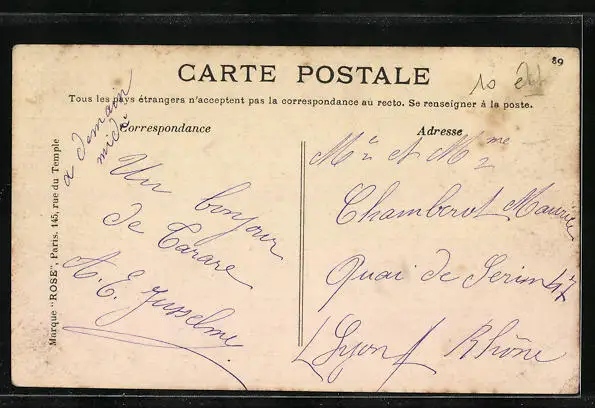 89
CARTE POSTALE
10
Tous les pays étrangers n'acceptent pas la correspondance au recto. Se renseigner à la poste.
Correspondance
Adresse
a demain
midi
Un bonjour
de Tarare
A. E. Jusselme
Mr et Mme
Chamberot Maurice
Quai de Serin 47
Lyon
Rhône
Marque "ROSE", Paris. 145, rue du Temple